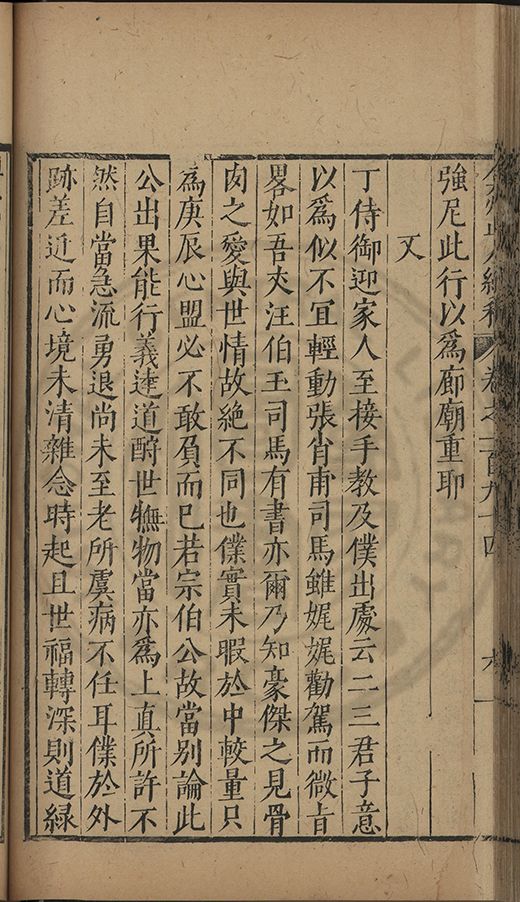 弇州山人續稿 卷之一百九十四 六
強尼此行以爲廊廟重耶
又
丁侍御迎家人至接手教及僕出處云二三君子意
以爲似不宜輕動張肖甫司馬雖娓娓勸駕而微旨
畧如吾丈汪伯玉司馬有書亦爾乃知豪傑之見骨
肉之愛與世情故絶不同也僕實未暇於中較量只
為庚辰心盟必不敢負而已若宗伯公故當别論此
公出果能行義達道酧世憮物當亦爲上真所許不
然自當急流勇退尚未至老所虞病不任耳僕於外
跡差近而心境未清雜念時起且世福轉深則道緑